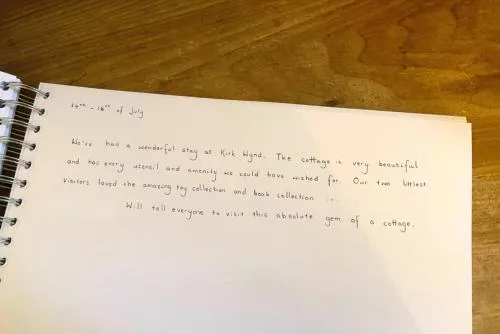 14th - 16th of July
We've had a wonderful stay at Kirk Wynd. The cottage is very beautiful
and has every utensil and amenity we could have wished for. Our two littlest
visitors loved the amazing toy collection and book collection ...
Will tell everyone to visit this absolute gem of a cottage.